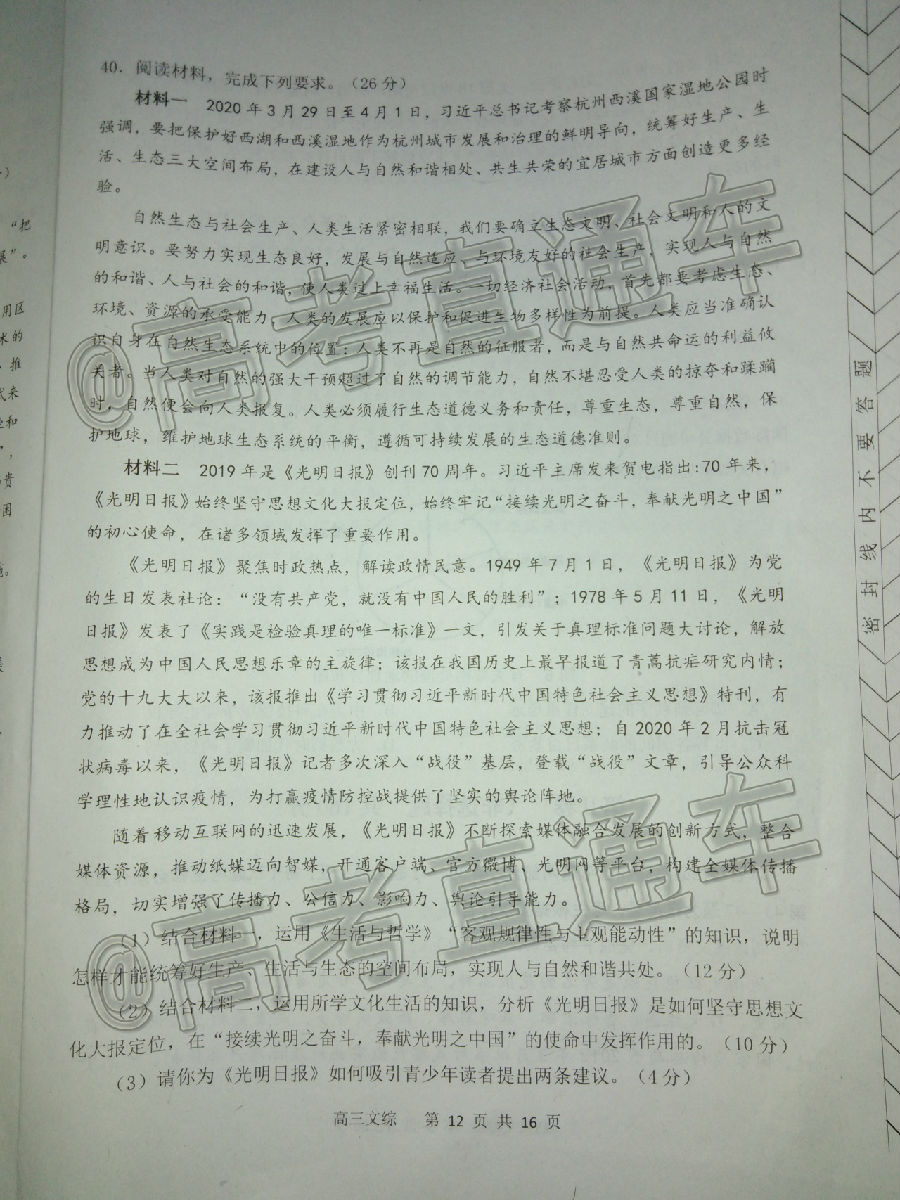 40．阅读材料，完成下列要求。（26分）
材料一 2020年3月29日至4月1日，习近平总书记考察杭州西溪国家湿地公园时
强调，要把保护好西湖和西溪湿地作为杭州城市发展和治理的鲜明导向，统筹好生产、生
活、生态三大空间布局，在建设人与自然和谐相处、共生共荣的宜居城市方面创造更多经
验。
自然生态与社会生产、人类生活紧密相联，我们要确立生态文明、社会文明和人的文
明意识。要努力实现生态良好，发展与自然适应、与环境友好的社会生产，实现人与自然
的和谐、人与社会的和谐，使人类过上幸福生活。一切经济社会活动，首先都要考虑生态、
环境、资源的承受能力，人类的发展应以保护和促进生物多样性为前提。人类应当准确认
识自身在自然生态系统中的位置：人类不再是自然的征服者，而是与自然共命运的利益攸
关者。当人类对自然的强大干预超过了自然的调节能力，自然不堪忍受人类的掠夺和蹂躏
时，自然便会向人类报复。人类必须履行生态道德义务和责任，尊重生态，尊重自然，保
护地球，维护地球生态系统的平衡，遵循可持续发展的生态道德准则。
材料二 2019年是《光明日报》创刊70周年。习近平主席发来贺电指出：70年来，
《光明日报》始终坚守思想文化大报定位，始终牢记“接续光明之奋斗，奉献光明之中国”
的初心使命，在诸多领域发挥了重要作用。
《光明日报》聚焦时政热点，解读政情民意。1949年7月1日，《光明日报》为党
的生日发表社论：“没有共产党，就没有中国人民的胜利”；1978年5月11日，《光明
日报》发表了《实践是检验真理的唯一标准》一文，引发关于真理标准问题大讨论，解放
思想成为中国人民思想乐章的主旋律；该报在我国历史上最早报道了青蒿抗疟研究内情；
党的十九大大以来，该报推出《学习贯彻习近平新时代中国特色社会主义思想》特刊，有
力推动了在全社会学习贯彻习近平新时代中国特色社会主义思想；自2020年2月抗击冠
状病毒以来，《光明日报》记者多次深入“战役”基层，登载“战役”文章，引导公众科
学理性地认识疫情，为打赢疫情防控战提供了坚实的舆论阵地。
随着移动互联网的迅速发展，《光明日报》不断探索媒体融合发展的创新方式，整合
媒体资源，推动纸媒迈向智媒，开通客户端、官方微博、光明网等平台，构建全媒体传播
格局，切实增强了传播力、公信力、影响力、舆论引导能力。
（1）结合材料一，运用《生活与哲学》“客观规律性与主观能动性”的知识，说明
怎样才能统筹好生产、生活与生态的空间布局，实现人与自然和谐共处。（12分）
（2）结合材料二，运用所学文化生活的知识，分析《光明日报》是如何坚守思想文
化大报定位，在“接续光明之奋斗，奉献光明之中国”的使命中发挥作用的。（10分）
（3）请你为《光明日报》如何吸引青少年读者提出两条建议。（4分）
高三文综 第12页共16页
密封线内不要答题
@高考直通车
@高考直通车
“把
展”。
用区
水的
推
代来
和
贵
困